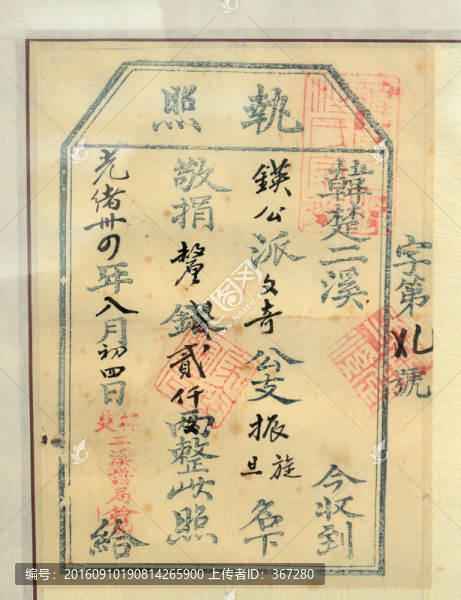 執照
字第　號
韓楚二溪　今收到
鍈公派文奇公支振旦旋名下
敬捐　銀貳仟兩整此照
光緒卅四年八月初四日　給
二溪譜局
编号：20160910190814265900 上传者ID：367280